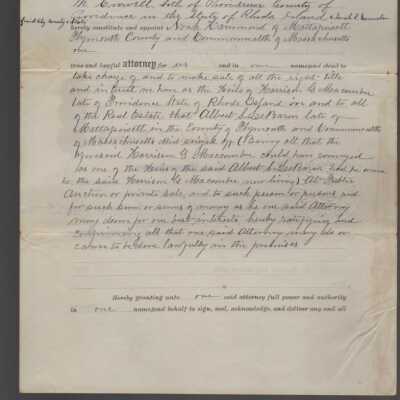 M. Crowell, both of Providence County of
Providence in the State of Rhode Island
hereby constitute and appoint Noah Hammond of Mattapoisett
Plymouth County and Commonwealth of Massachusetts
our
true and lawful attorney for us and in our name and stead to
take charge of and to make sale of all the right title
and interest we have as the Heirs of Harrison G. Macomber
late of Providence State of Rhode Island in and to all
of the Real Estate that Albert S. late of
Mattapoisett in the County of Plymouth and Commonwealth
of Massachusetts died seized of (Being all that the
said Harrison G. Macomber could have conveyed
as one of the Heirs of the said Albert S. had he
the said Harrison G. Macomber now living) At Public
Auction or private sale, and to such person or persons and
for such sum or sums of money as he our said Attorney
may deem for our best interests hereby ratifying and
confirming all that our said Attorney may do or
cause to be done lawfully in the premises
Hereby granting unto our said attorney full power and authority
in our name and behalf to sign, seal, acknowledge, and deliver any and all